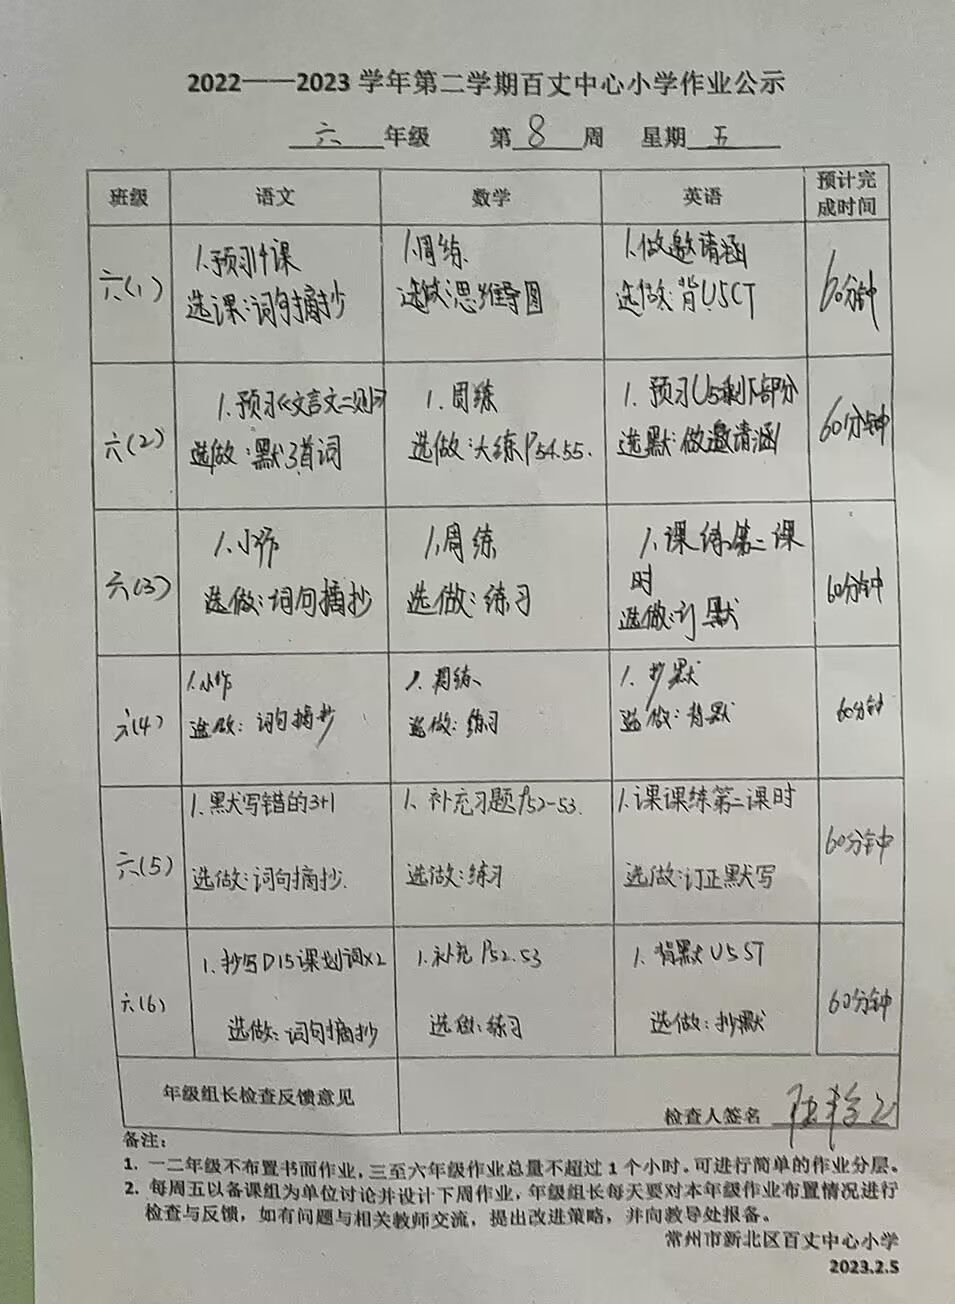 2022——2023 学年第二学期百丈中心小学作业公示
六 年级 第 8 周 星期 五
班级 语文 数学 英语 预计完成时间
六(1)
1.预习14课
选课:词句摘抄
1.周练
选做:思维导图
1.做邀请涵
选做:背U5CT
60分钟
六(2)
1.预习《文言文二则》
选做:默3首词
1.周练
选做:大练P54.55.
1.预习U5剩下部分
选默:做邀请涵
60分钟
六(3)
1.小作
选做:词句摘抄
1.周练
选做:练习
1.课练第二课
时
选做:订默
60分钟
六(4)
1.小作
选做:词句摘抄
1.周练
选做:练习
1.抄默
选做:背默
60分钟
六(5)
1.默写错的3+1
选做:词句摘抄.
1.补充习题P52-53.
选做:练习
1.课课练第二课时
选做:订正默写
60分钟
六(6)
1.抄写D15课划词×2
选做:词句摘抄
1.补充P52.53
选做:练习
1.背默U5ST
选做:抄默
60分钟
年级组长检查反馈意见
检查人签名
备注:
1. 一二年级不布置书面作业,三至六年级作业总量不超过 1 个小时。可进行简单的作业分层。
2. 每周五以备课组为单位讨论并设计下周作业,年级组长每天要对本年级作业布置情况进行
检查与反馈,如有问题与相关教师交流,提出改进策略,并向教导处报备。
常州市新北区百丈中心小学
2023.2.5